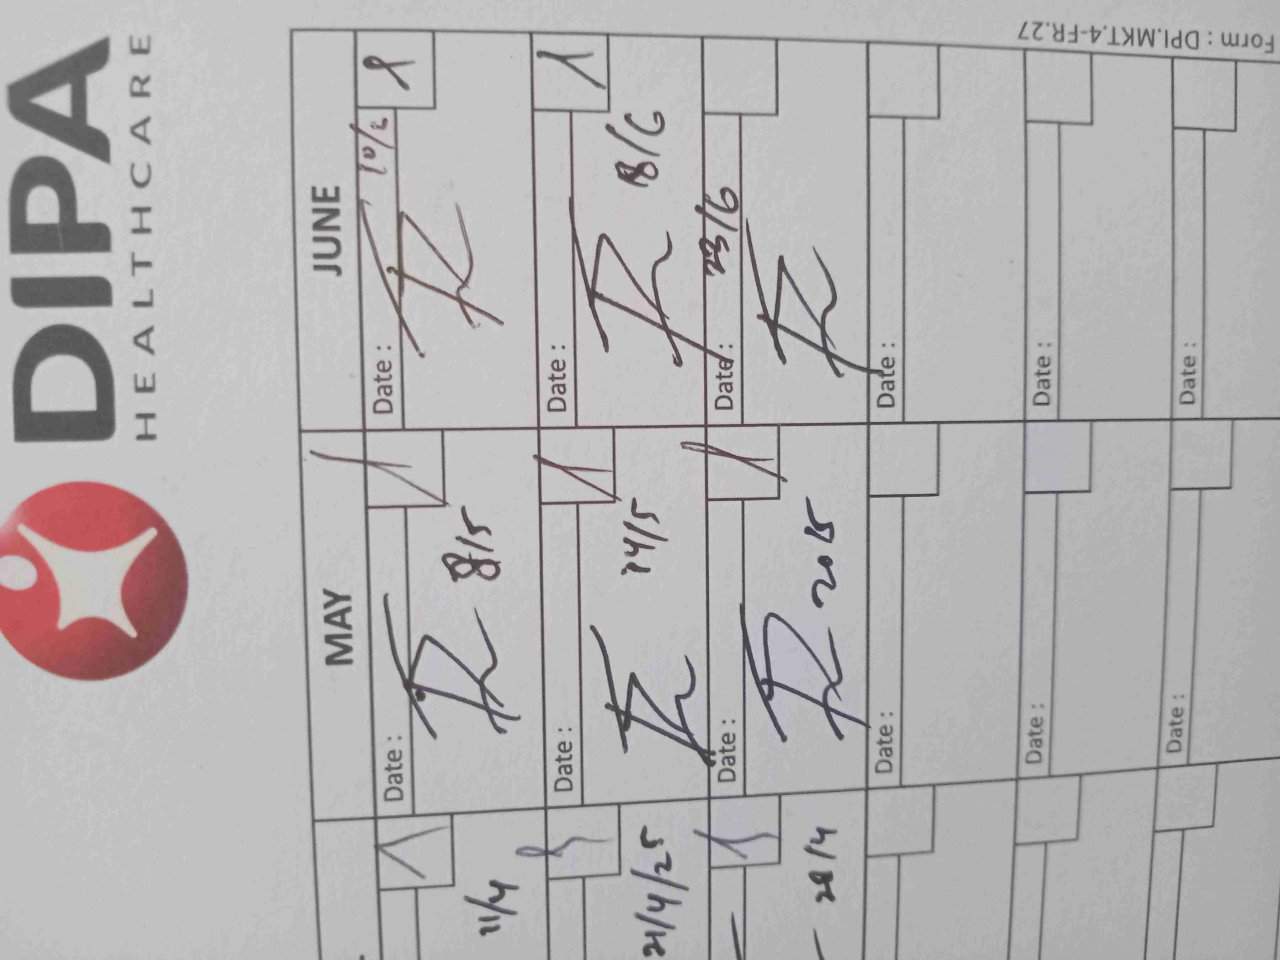 DIPA
HEALTHCARE
MAY
JUNE
Date :
8/5
Date :
10/6
11/4
Date :
14/5
Date :
18/6
21/4/25
Date :
Date :
23/6
28/4
Date :
Date :
Date :
Date :
Date :
Date :
Form : DPI.MKT.4-FR.27